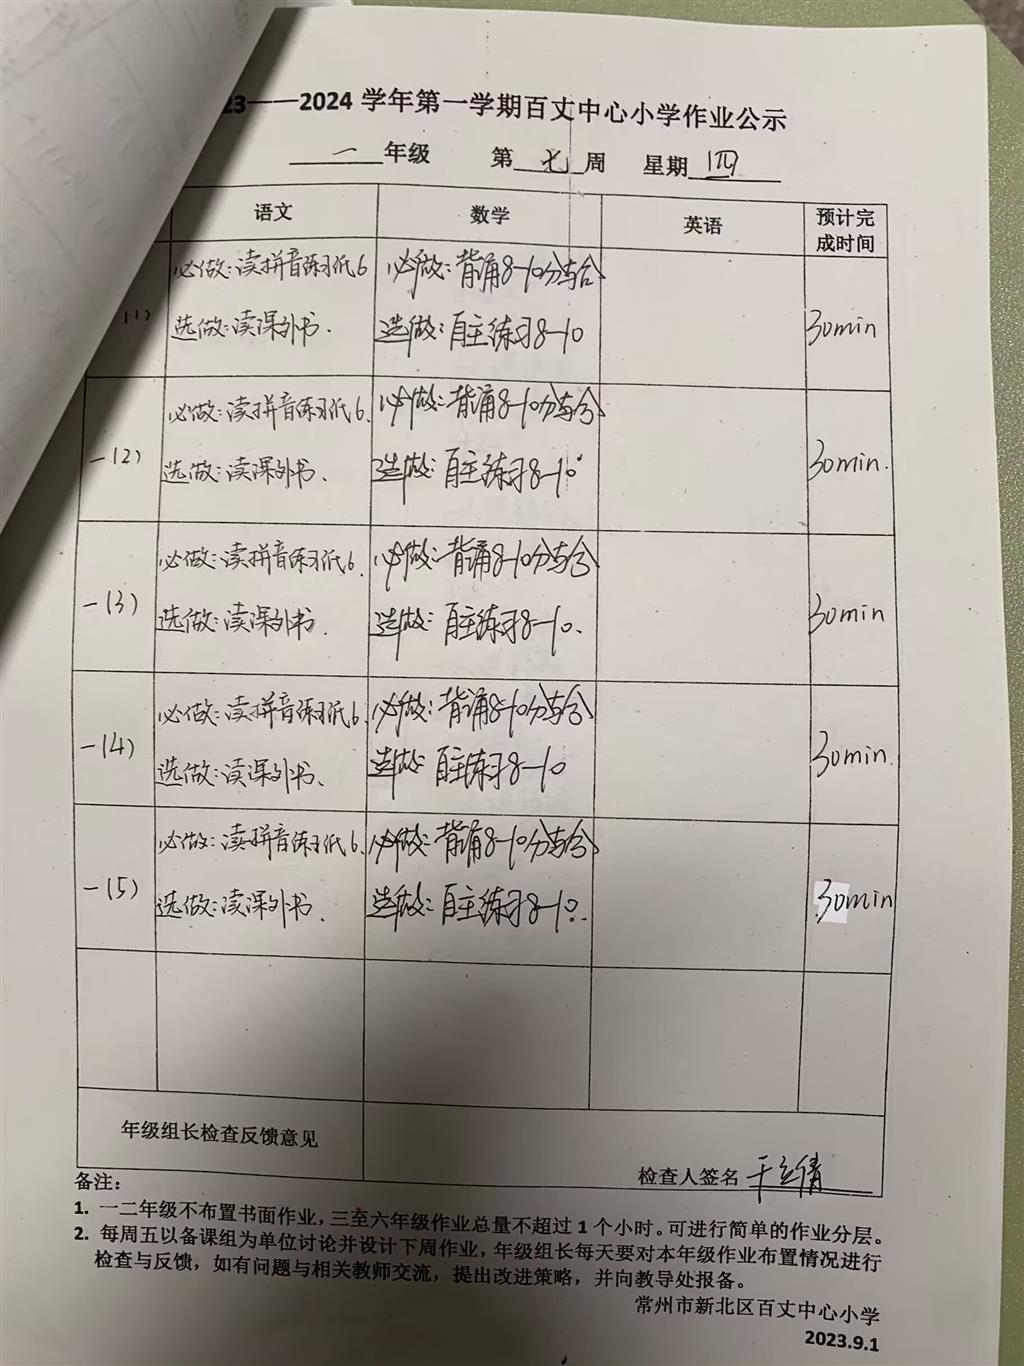 23——2024 学年第一学期百丈中心小学作业公示
一 年级 第 七 周 星期 四
语文 数学 英语 预计完成时间
必做:读拼音练习纸6 必做:背诵8-10分与合
(1) 30min
选做:读课外书. 选做:自主练习8-10
必做:读拼音练习纸6. 必做:背诵8-10分与合
一(2) 30min.
选做:读课外书. 选做:自主练习8-10
必做:读拼音练习纸6. 必做:背诵8-10分与合
一(3) 30min
选做:读课外书. 选做:自主练习8-10.
必做:读拼音练习纸6. 必做:背诵8-10分与合
一(4) 30min.
选做:读课外书. 选做:自主练习8-10
必做:读拼音练习纸6. 必做:背诵8-10分与合
一(5) 30min
选做:读课外书. 选做:自主练习8-10.
年级组长检查反馈意见
检查人签名
备注:
1. 一二年级不布置书面作业,三至六年级作业总量不超过 1 个小时。可进行简单的作业分层。
2. 每周五以备课组为单位讨论并设计下周作业,年级组长每天要对本年级作业布置情况进行
检查与反馈,如有问题与相关教师交流,提出改进策略,并向教导处报备。
常州市新北区百丈中心小学
2023.9.1